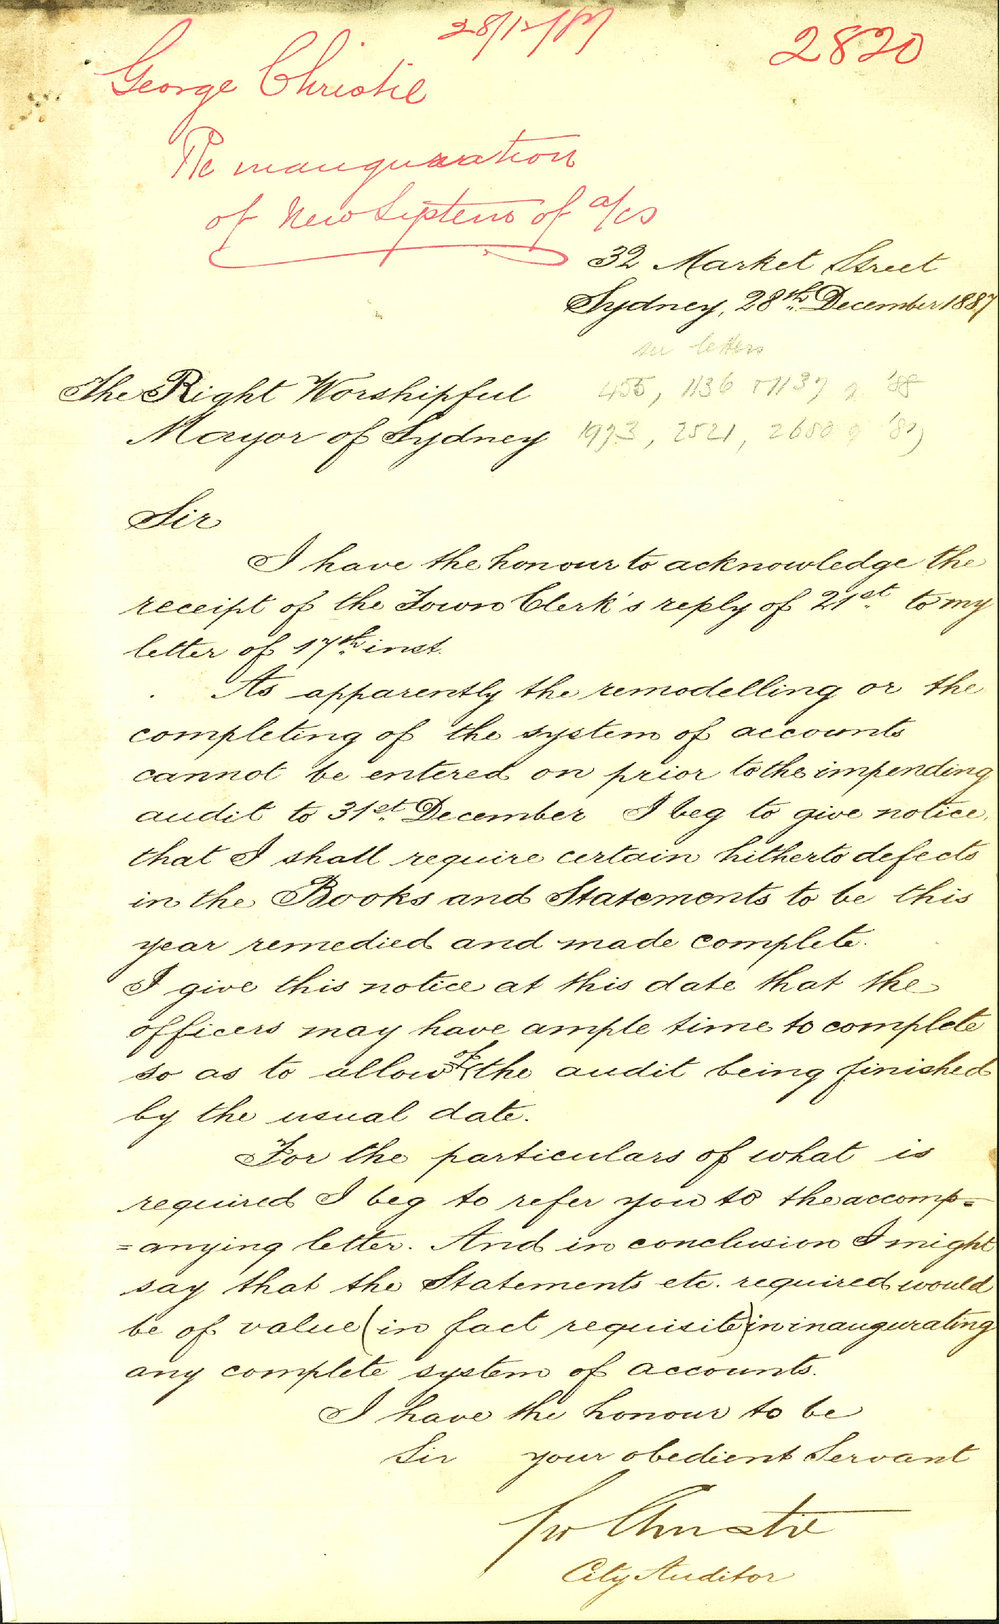 28/12/87
2820
George Christie
Re inauguration
of New System of a/cs
32 Market Street
Sydney, 28th. December 1887
see letters
The Right Worshipful
455, 1136 & 1137 of '88
Mayor of Sydney
1973, 2521, 2650 of '87
Sir
I have the honour to acknowledge the
receipt of the Town Clerk's reply of 21st. to my
letter of 17th. inst.
As apparently the remodelling or the
completing of the system of accounts
cannot be entered on prior to the impending
audit to 31st. December I beg to give notice
that I shall require certain hitherto defects
in the Books and Statements to be this
year remedied and made complete.
I give this notice at this date that the
officers may have ample time to complete
so as to allow of the audit being finished
by the usual date.
For the particulars of what is
required I beg to refer you to the accomp=
=anying letter. And in conclusion I might
say that the Statements etc. required would
be of value (in fact requisite) in inaugurating
any complete system of accounts.
I have the honour to be
Sir your obedient Servant
Christie
City Auditor